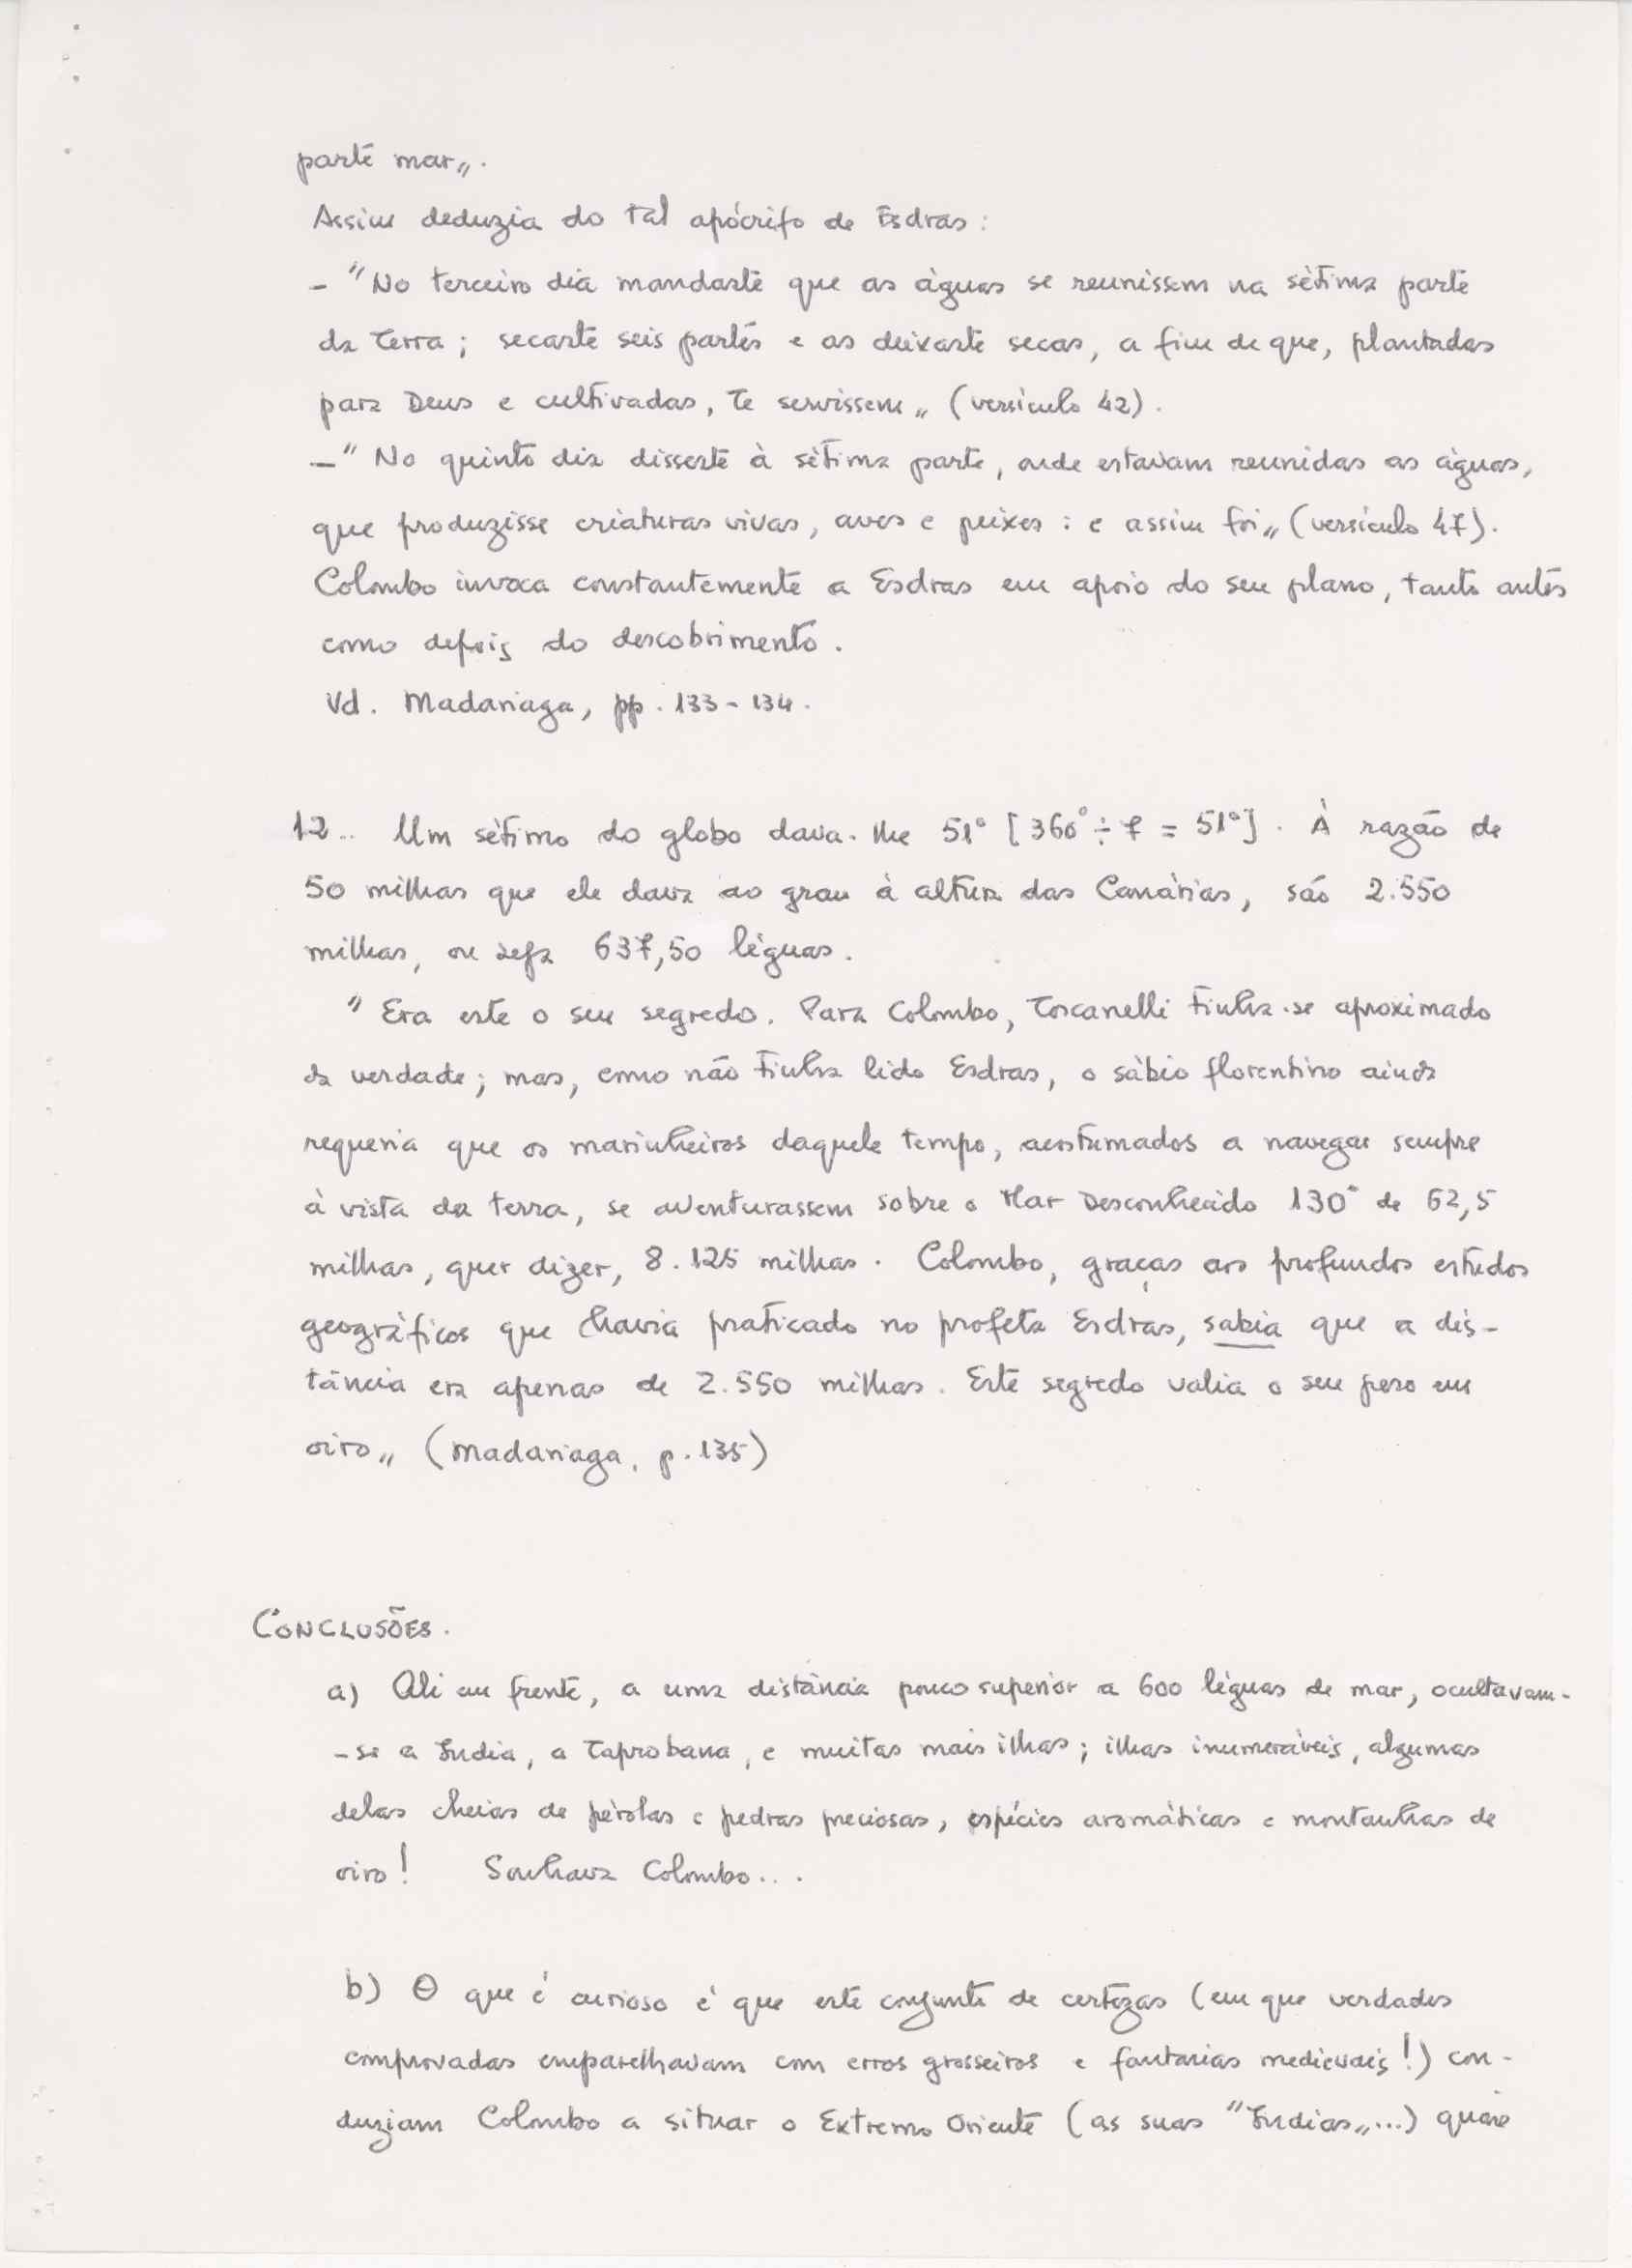 parte mar„.
Assim deduzia do tal apócrifo de Esdras:
– "No terceiro dia mandaste que as águas se reunissem na sétima parte
da Terra; secaste seis partes e as deixaste secas, a fim de que, plantadas
para Deus e cultivadas, te servissem„ (versículo 42).
– "No quinto dia disseste à sétima parte, onde estavam reunidas as águas,
que produzisse criaturas vivas, aves e peixes: e assim foi„ (versículo 47).
Colombo invoca constantemente a Esdras em apoio do seu plano, tanto antes
como depois do descobrimento.
Vd. Madariaga, pp. 133-134.
12.. Um sétimo do globo dava-lhe 51° [360° ÷ 7 = 51°]. À razão de
50 milhas que ele dava ao grau à altura das Canárias, são 2.550
milhas, ou seja 637,50 léguas.
"Era este o seu segredo. Para Colombo, Toscanelli tinha-se aproximado
da verdade; mas, como não tinha lido Esdras, o sábio florentino ainda
requeria que os marinheiros daquele tempo, acostumados a navegar sempre
à vista da terra, se aventurassem sobre o Mar Desconhecido 130° de 62,5
milhas, quer dizer, 8.125 milhas. Colombo, graças aos profundos estudos
geográficos que havia praticado no profeta Esdras, sabia que a dis-
tância era apenas de 2.550 milhas. Este segredo valia o seu peso em
oiro„ (Madariaga, p. 135)
CONCLUSÕES.
a) Ali em frente, a uma distância pouco superior a 600 léguas de mar, ocultavam-
-se a Índia, a Taprobana, e muitas mais ilhas; ilhas inumeráveis, algumas
delas cheias de pérolas e pedras preciosas, espécies aromáticas e montanhas de
oiro! Sonhava Colombo...
b) O que é curioso é que este conjunto de certezas (em que verdades
comprovadas emparelhavam com erros grosseiros e fantasias medievais!) con-
duziam Colombo a situar o Extremo Oriente (as suas "Índias„...) quase